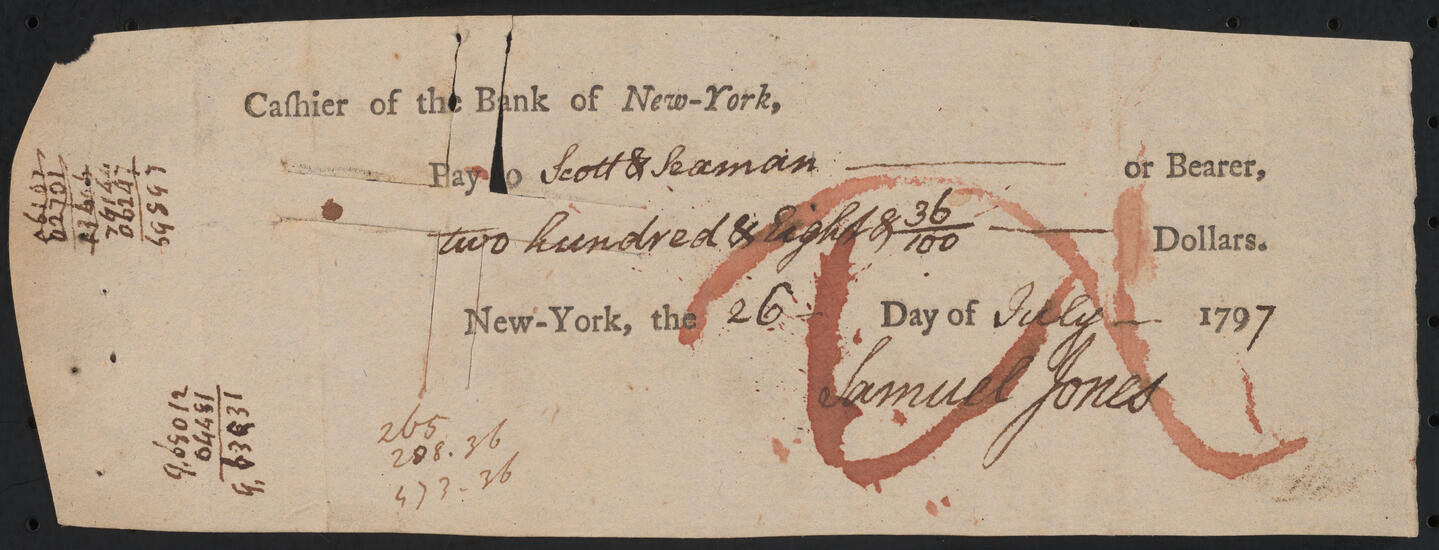 Caſhier of the Bank of New-York,
Pay to Scott & Seaman — or Bearer,
two hundred & Eight & 36/100 — Dollars.
New-York, the 26 — Day of July — 1797
Samuel Jones
265
208.36
473-36